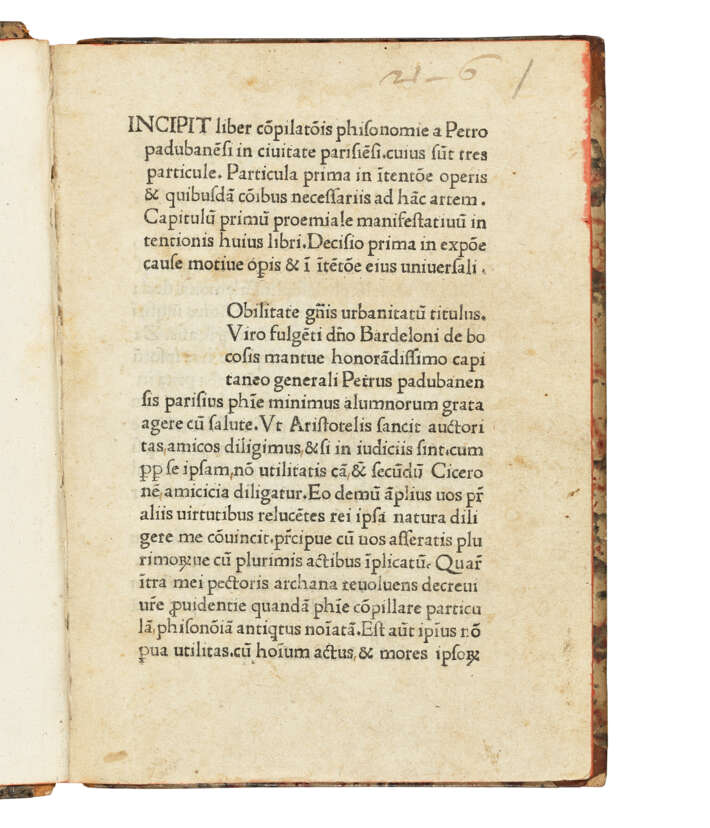 21–6 /
INCIPIT liber cõpilatõis phiſonomie a Petro
padubanẽſi in ciuitate pariſiẽſi.cuius ſũt tres
particule. Particula prima in ĩtentõe operis
& quibuſdã cõibus neceſſariis ad hãc artem.
Capitulũ primũ proemiale manifeſtatiuũ in
tentionis huius libri.Deciſio prima in expõe
cauſe motiue oꝑis & ĩ ĩtẽtõe eius uniuerſali.
Obilitate gñis urbanitatũ titulus.
Viro fulgẽti dño Bardeloni de bo
coſis mantue honorãdiſſimo capi
taneo generali Petrus padubanen
ſis pariſius phĩe minimus alumnorum grata
agere cũ ſalute.Vt Ariſtotelis ſancit auctori
tas,amicos diligimus,&ſi in iudiciis ſint.cum
ꝓꝑ ſe ipſam,nõ utilitatis cã,& ſecũdũ Cicero
nẽ,amicicia diligatur.Eo demũ ãplius uos pr̃
aliis uirtutibus relucẽtes rei ipſa natura dili
gere me cõuincit.pr̃cipue cũ uos aſſeratis plu
rimoꝝue cũ plurimis actibus ĩplicatũ. Quar̃
ĩtra mei pectoris archana reuoluens decreui
ur̃e ꝓuidentie quandã phĩe cõpillare particu
lã,phiſonõiã antiqtus noĩatã.Eſt aũt ipĩus nõ
ꝑua utilitas.cũ hoĩum actus,& mores ipſoꝝ